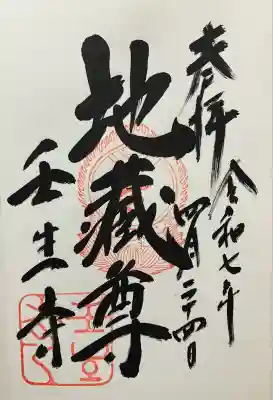 奉拝 令和七年
四月二十四日
地蔵尊
壬生寺